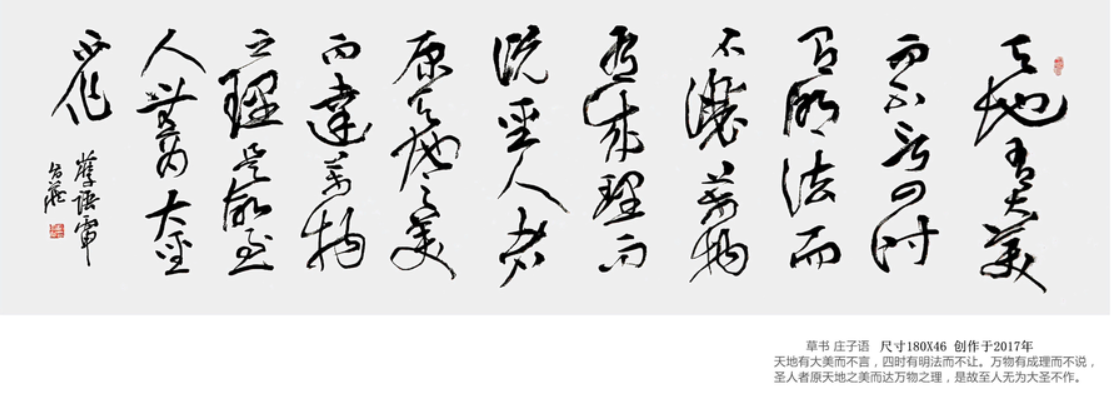 天地有大美
而不言四时
有明法而
不讓萬物
有成理而
说聖人者
原天地之美
而達萬物
之理是故至
人無為大聖
不作
草书 庄子语 尺寸180X46 创作于2017年
天地有大美而不言，四时有明法而不让。万物有成理而不说，
圣人者原天地之美而达万物之理，是故至人无为大圣不作。